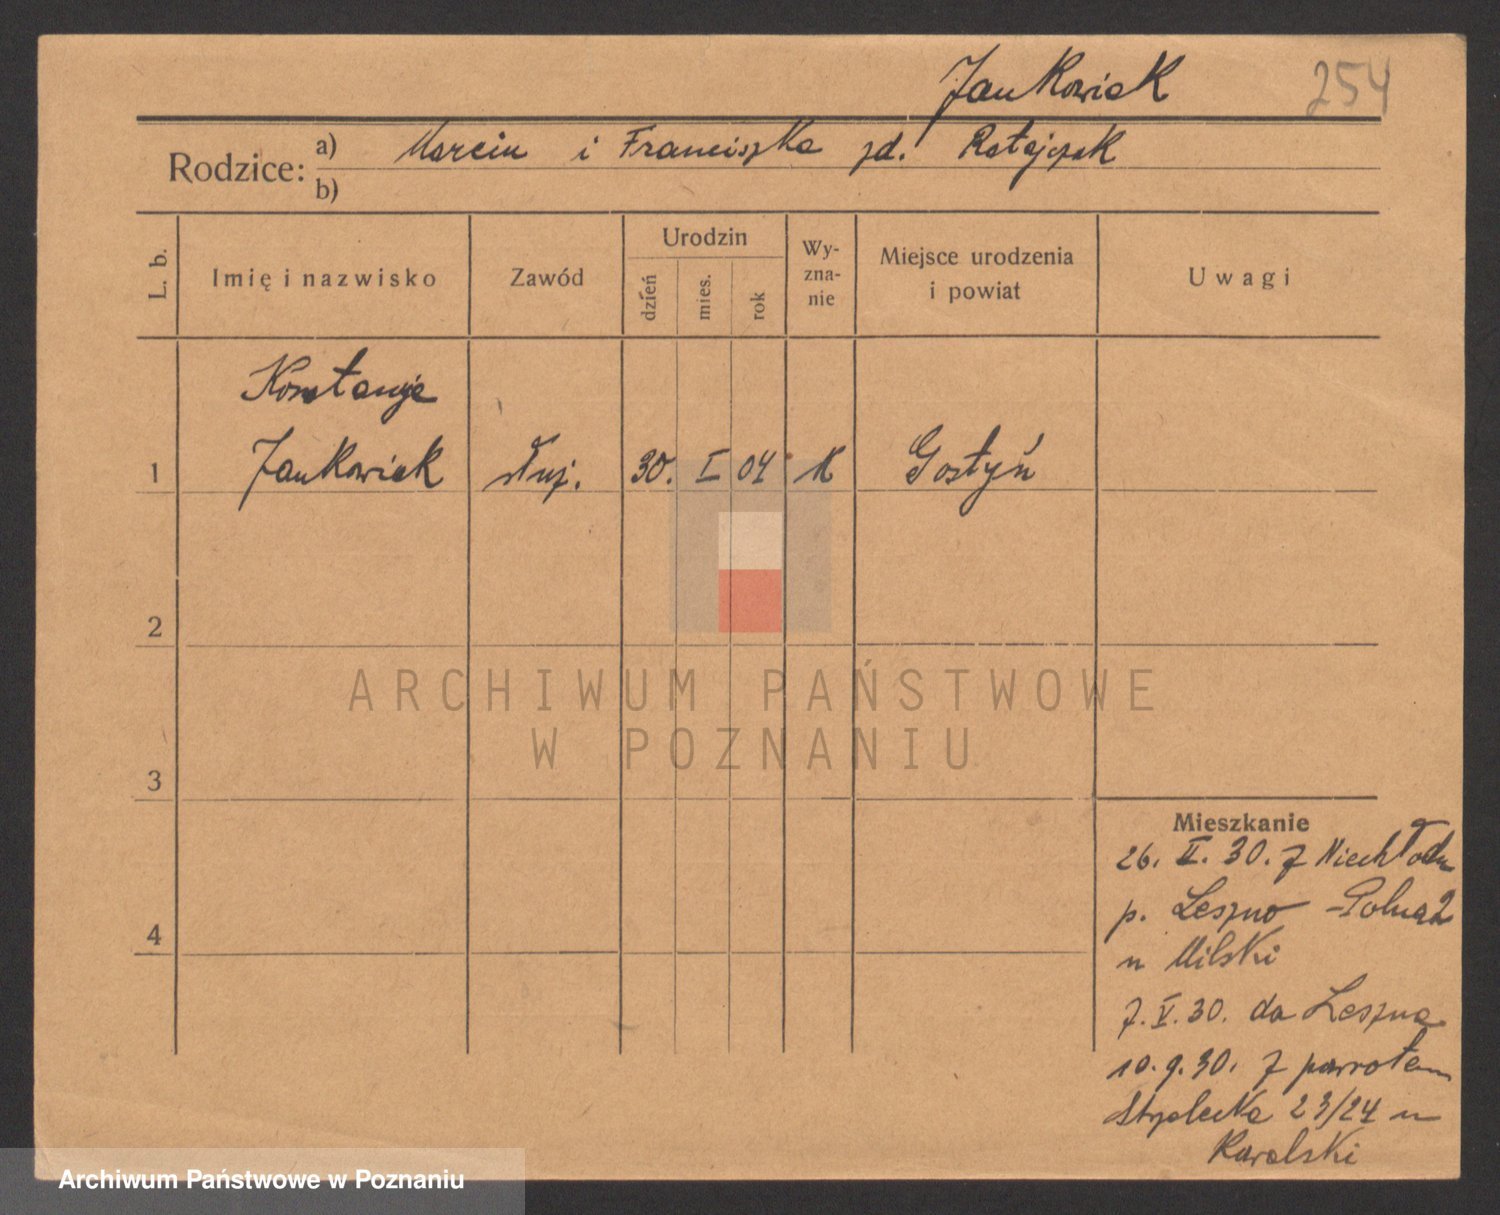 Jankowiak
254
Rodzice:
a) Marcin i Franciszka zd. Ratajczak
b)
L. b.
Imię i nazwisko
Zawód
Urodzin
dzień
mies.
rok
Wy-
zna-
nie
Miejsce urodzenia
i powiat
Uwagi
Konstancja
1 Jankowiak służ. 30. I 04 K Gostyń
2
ARCHIWUM PAŃSTWOWE
W POZNANIU
3
Mieszkanie
26. II. 30. z Niechłodu
p. Leszno - Polna 2
u Milski
7. V. 30. do Leszna
4
10. 9. 30. z powrotem
Strzelecka 23/24 u
Kowalski
Archiwum Państwowe w Poznaniu